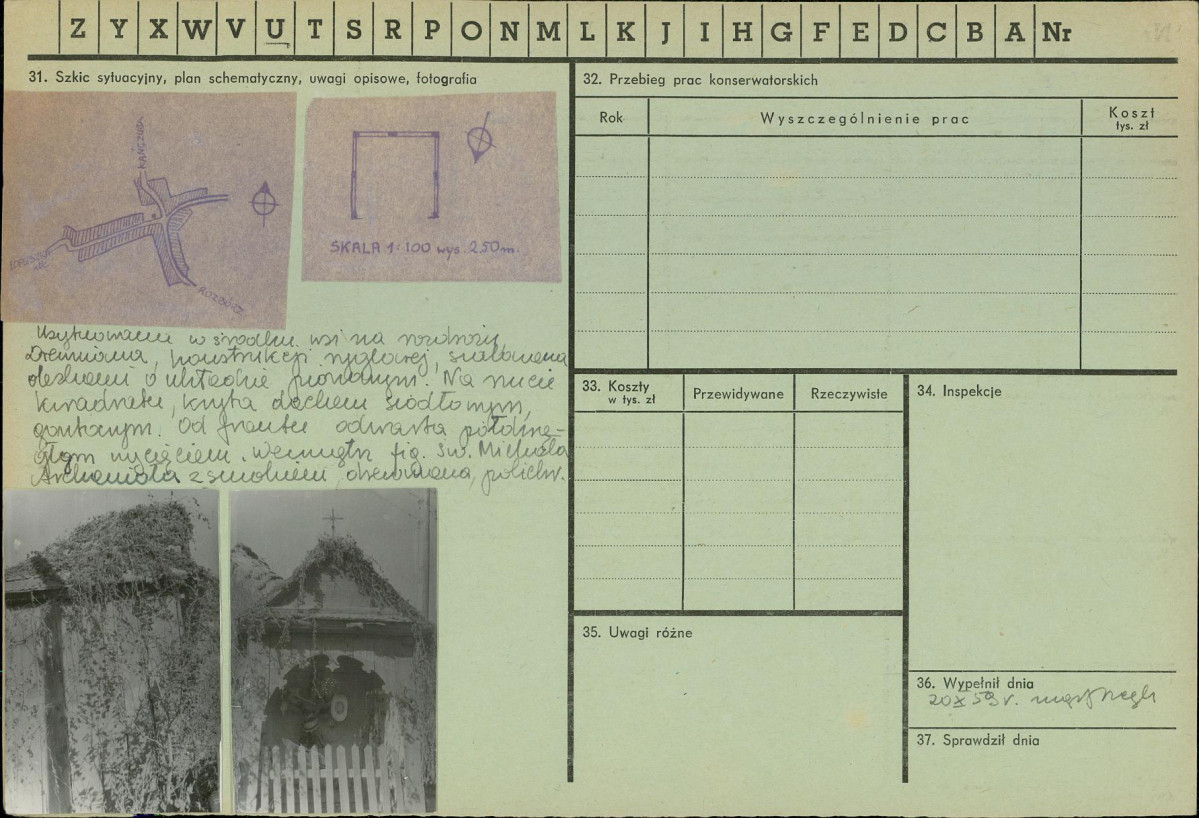 Z Y X W V U T S R P O N M L K J I H G F E D C B A Nr
31. Szkic sytuacyjny, plan schematyczny, uwagi opisowe, fotografia
KAŃCZUGA
ROZBÓRZ
SKALA 1:100 wys. 2,50 m.
Usytuowana w środku wsi na rozdrożu,
Drewniana, konstrukcji ryglowej, szalowana
deskami o układzie pionowym. Na rzucie
kwadratu, kryta dachem siodłowym,
gontowym. Od frontu otwarta półokrą-
głym wycięciem. Wewnątrz fig. św. Michała
Archanioła z smokiem, drewniana, polichr.
32. Przebieg prac konserwatorskich
Rok
Wyszczególnienie prac
Koszt
tys. zł
33. Koszty
w tys. zł
Przewidywane
Rzeczywiste
34. Inspekcje
35. Uwagi różne
36. Wypełnił dnia
20 X 59 r.
37. Sprawdził dnia